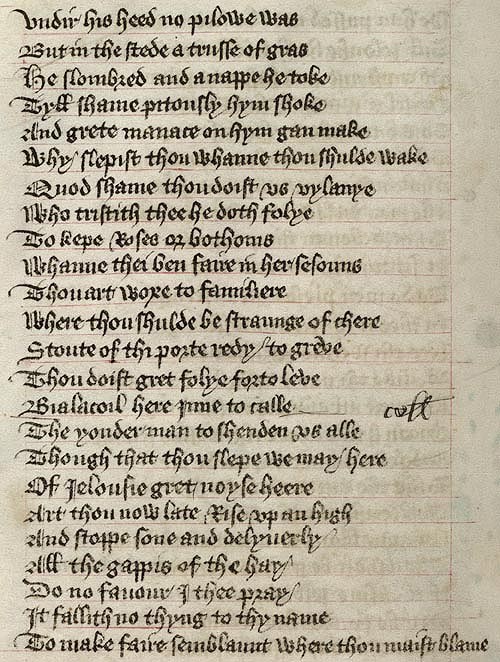 Vndir his heed no pilowe was
But in the stede a trusse of gras
He slombred and a nappe he toke
Tyll shame pitously hym shoke
And grete manace on hym gan make
Why slepist thou whanne thou shulde wake
Quod shame thou doist vs vylanye
Who tristith thee he doth folye
To kepe Roses or bothoms
Whanne thei ben faire in her sesouns
Thou art woxe to familiere
Where thou shulde be straunge of chere
Stoute of thi porte redy / to greve
Thou doist gret folye forto leve
Bialacoil here inne to calle
coll
The yonder man to shenden vs alle
Though that thou slepe we may / here
Of Jelousie gret noyse heere
Art thou now late Rise vp an high
And stoppe sone and delyuerly
All the gappis of the hay /
Do no fauour I thee pray /
It fallith no thyng to thy name
To make faire semblaunt where thou maist blame